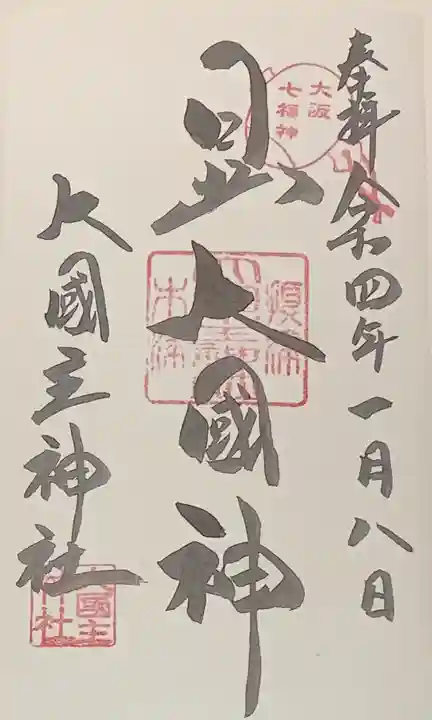 奉拝 令和四年一月八日
大阪
七福神
日出大國神
大國主神社
大國主
神社